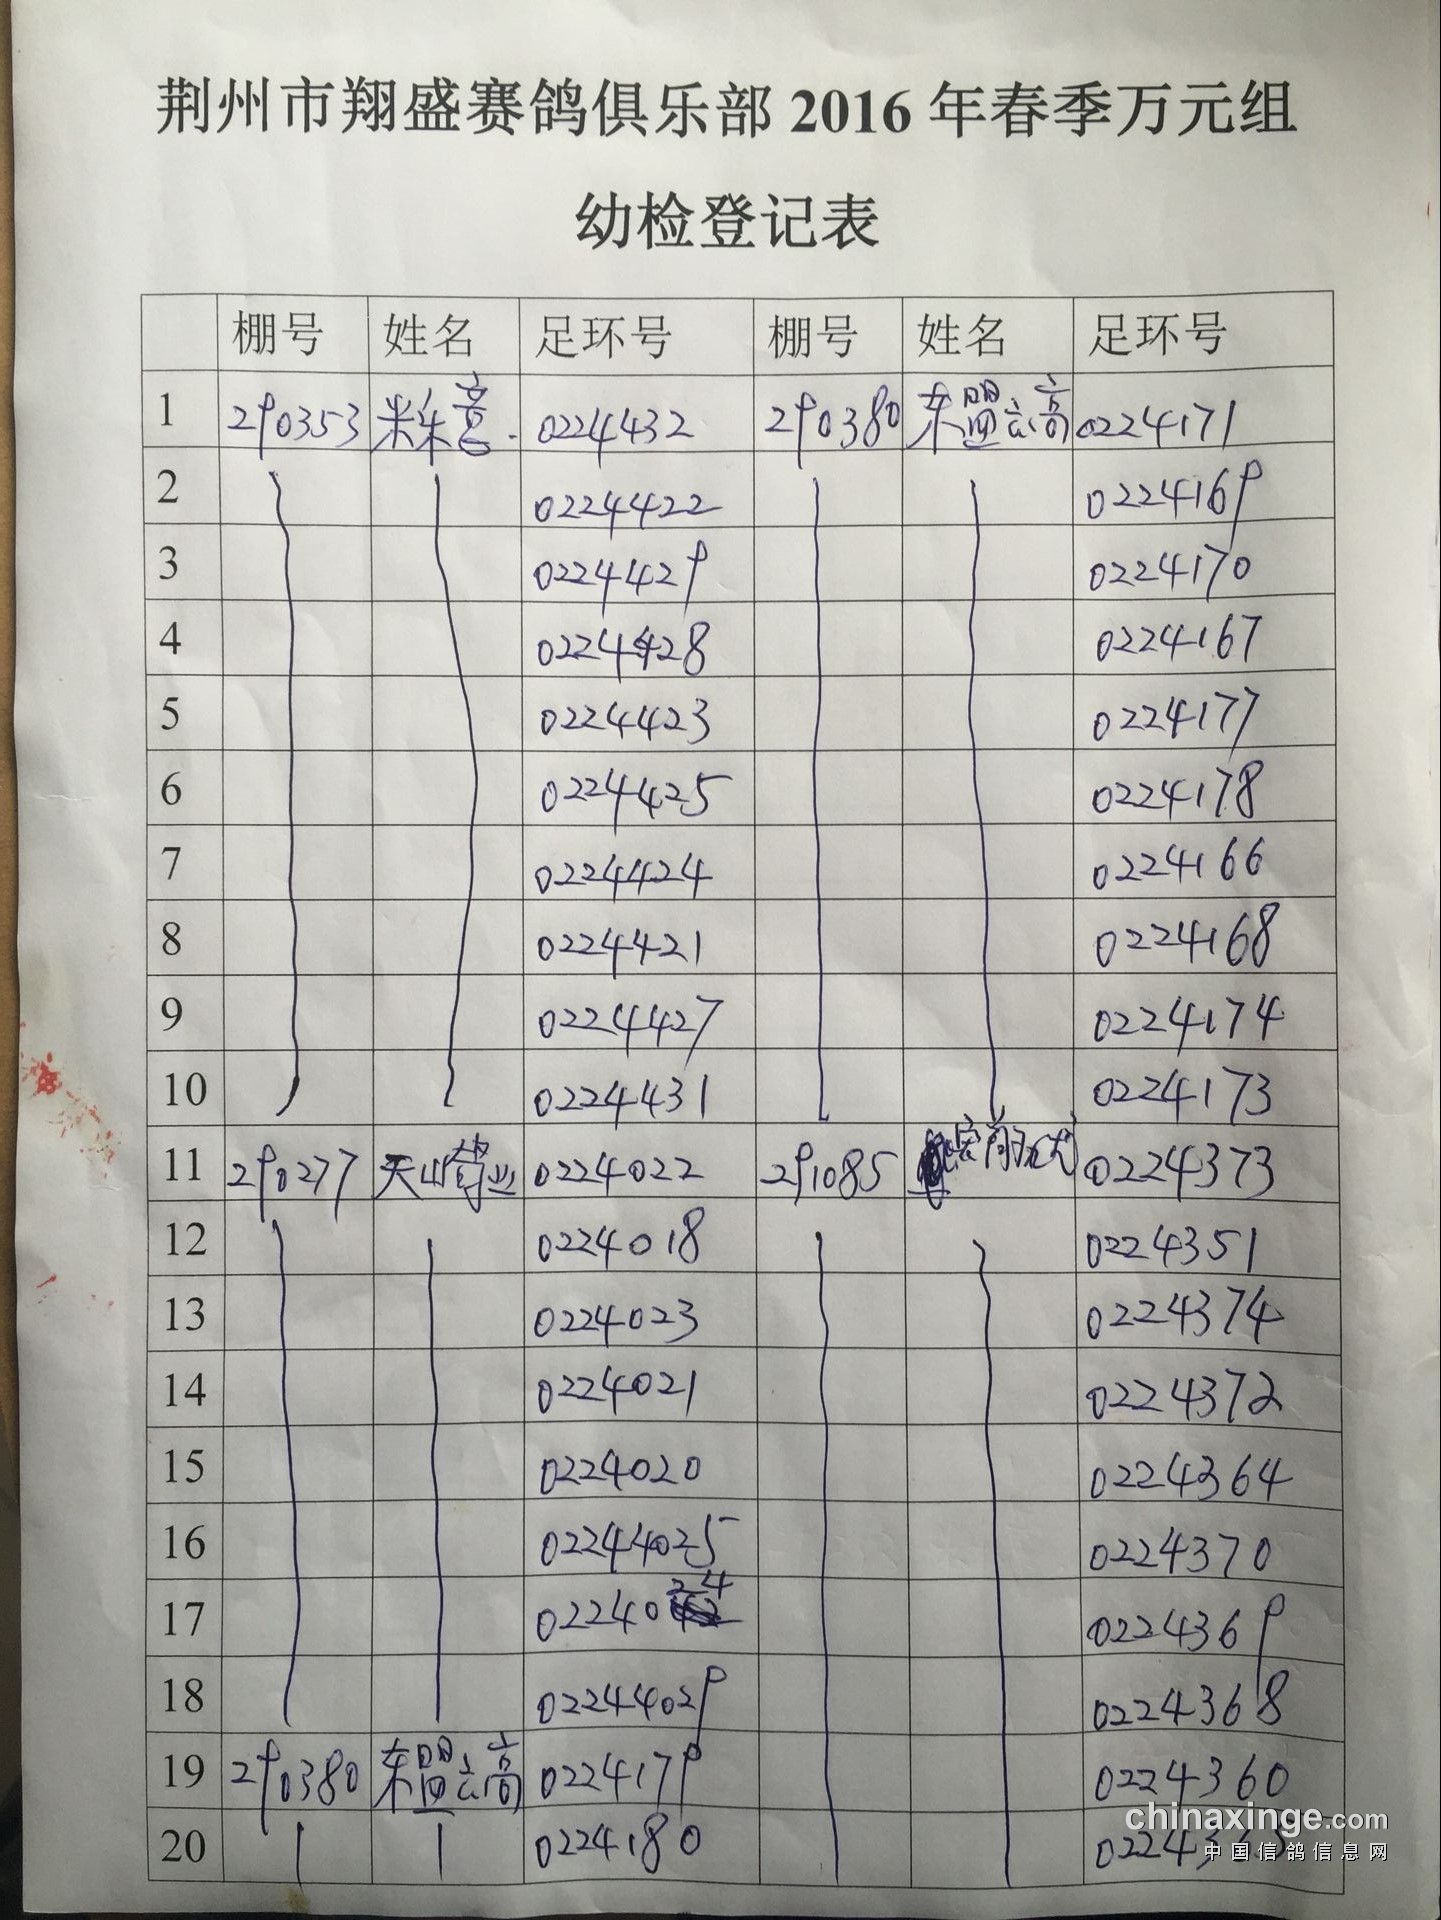 荆州市翔盛赛鸽俱乐部 2016 年春季万元组
幼检登记表
棚号 姓名 足环号 棚号 姓名 足环号
1 290353 米朱高 0224432 290380 东盟云高 0224171
2 0224422 0224169
3 0224429 0224170
4 0224428 0224167
5 0224423 0224177
6 0224425 0224178
7 0224424 0224166
8 0224421 0224168
9 0224427 0224174
10 0224431 0224173
11 290277 天山药业 0224022 291085 0224373
12 0224018 0224351
13 0224023 0224374
14 0224021 0224372
15 0224020 0224364
16 02244025 0224370
17 0224024 0224369
18 02244029 0224368
19 290380 东盟云高 0224179 0224360
20 0224180
chinaxinge.com
中国信鸽信息网